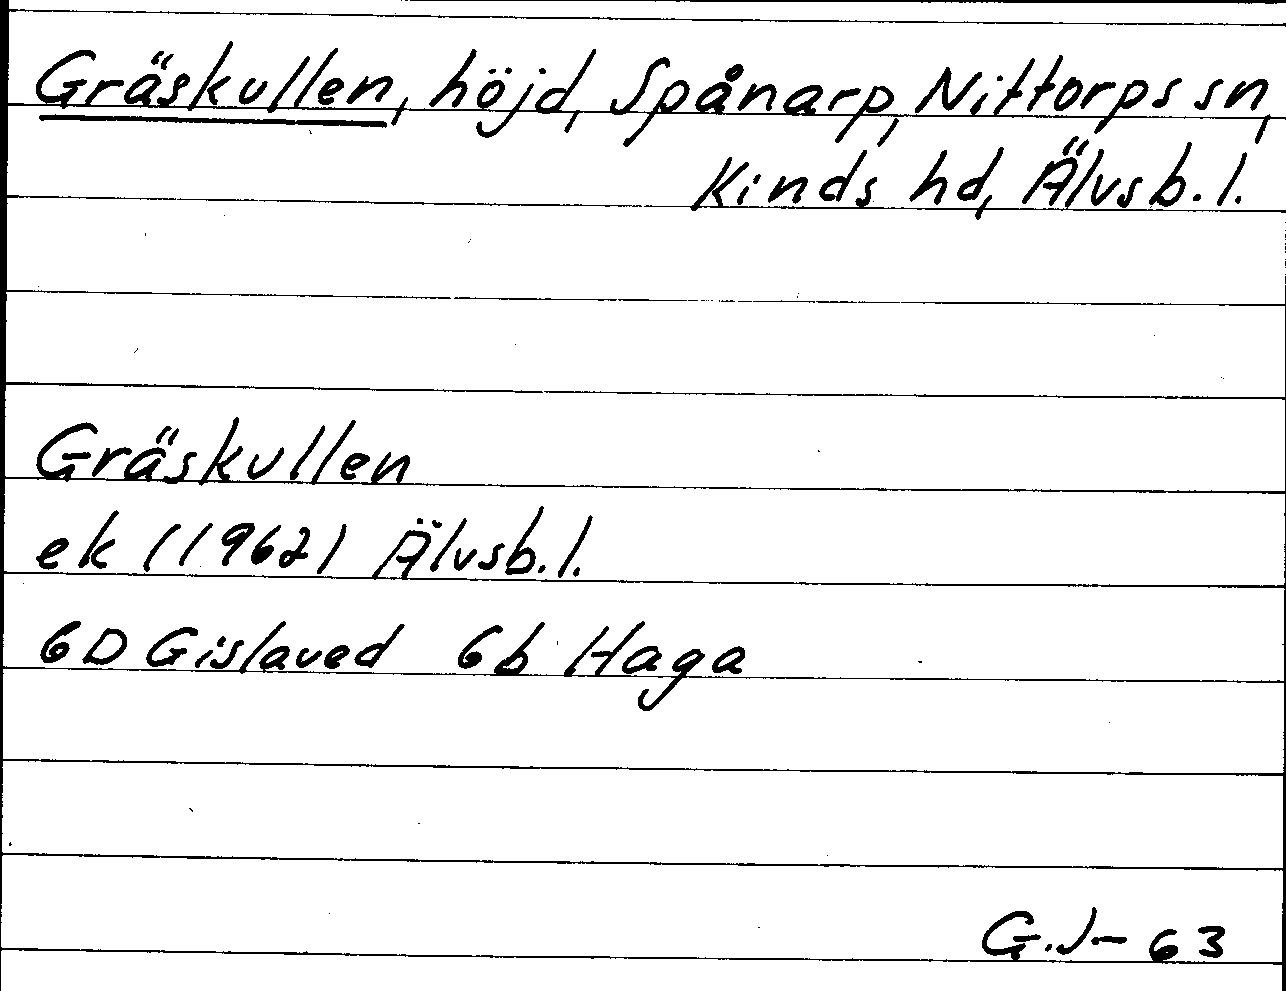 Gräskullen, höjd, Spånarp, Nittorps sn,
Kinds hd, Älvsb. l.
Gräskullen
ek (1962) Älvsb. l.
6D Gislaved 6b Haga
G.J-63